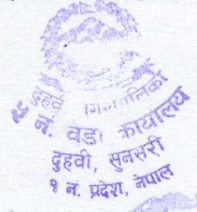 दुहवी नगरपालिका
९ नं. वडा कार्यालय
दुहवी, सुनसरी
१ नं. प्रदेश, नेपाल